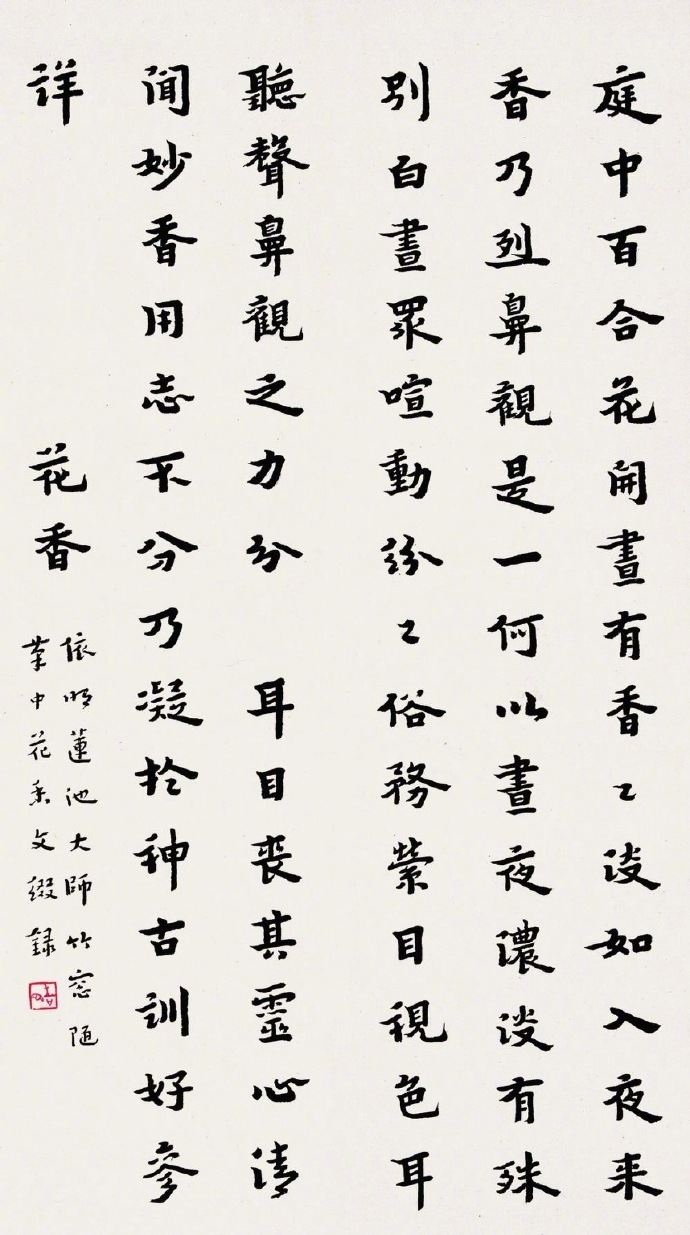 庭中百合花開晝有香〻淡如入夜来
香乃烈鼻觀是一何以晝夜濃淡有殊
别白晝眾喧動紛〻俗務縈目視色耳
聽聲鼻觀之力分 耳目喪其靈心清
聞妙香用志不分乃凝於神古訓好參
詳 花香
依明蓮池大師竹窓随
筆中花香文綴録